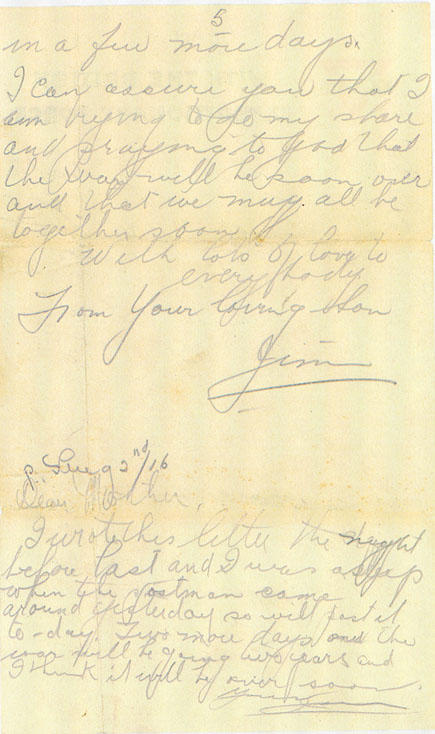 5
in a few more days.
I can assure you that I
am trying to do my share
and praying to God that
the war will be soon over
and that we may all be
together soon
With lots of love to
everybody
From Your loving Son
Jim
Aug 2nd/16
Dear Mother,
I wrote this letter the night
before last and I was asleep
when the postman came
around yesterday so will post it
to-day. Two more days and the
war will be going two years and
I think it will be over soon.